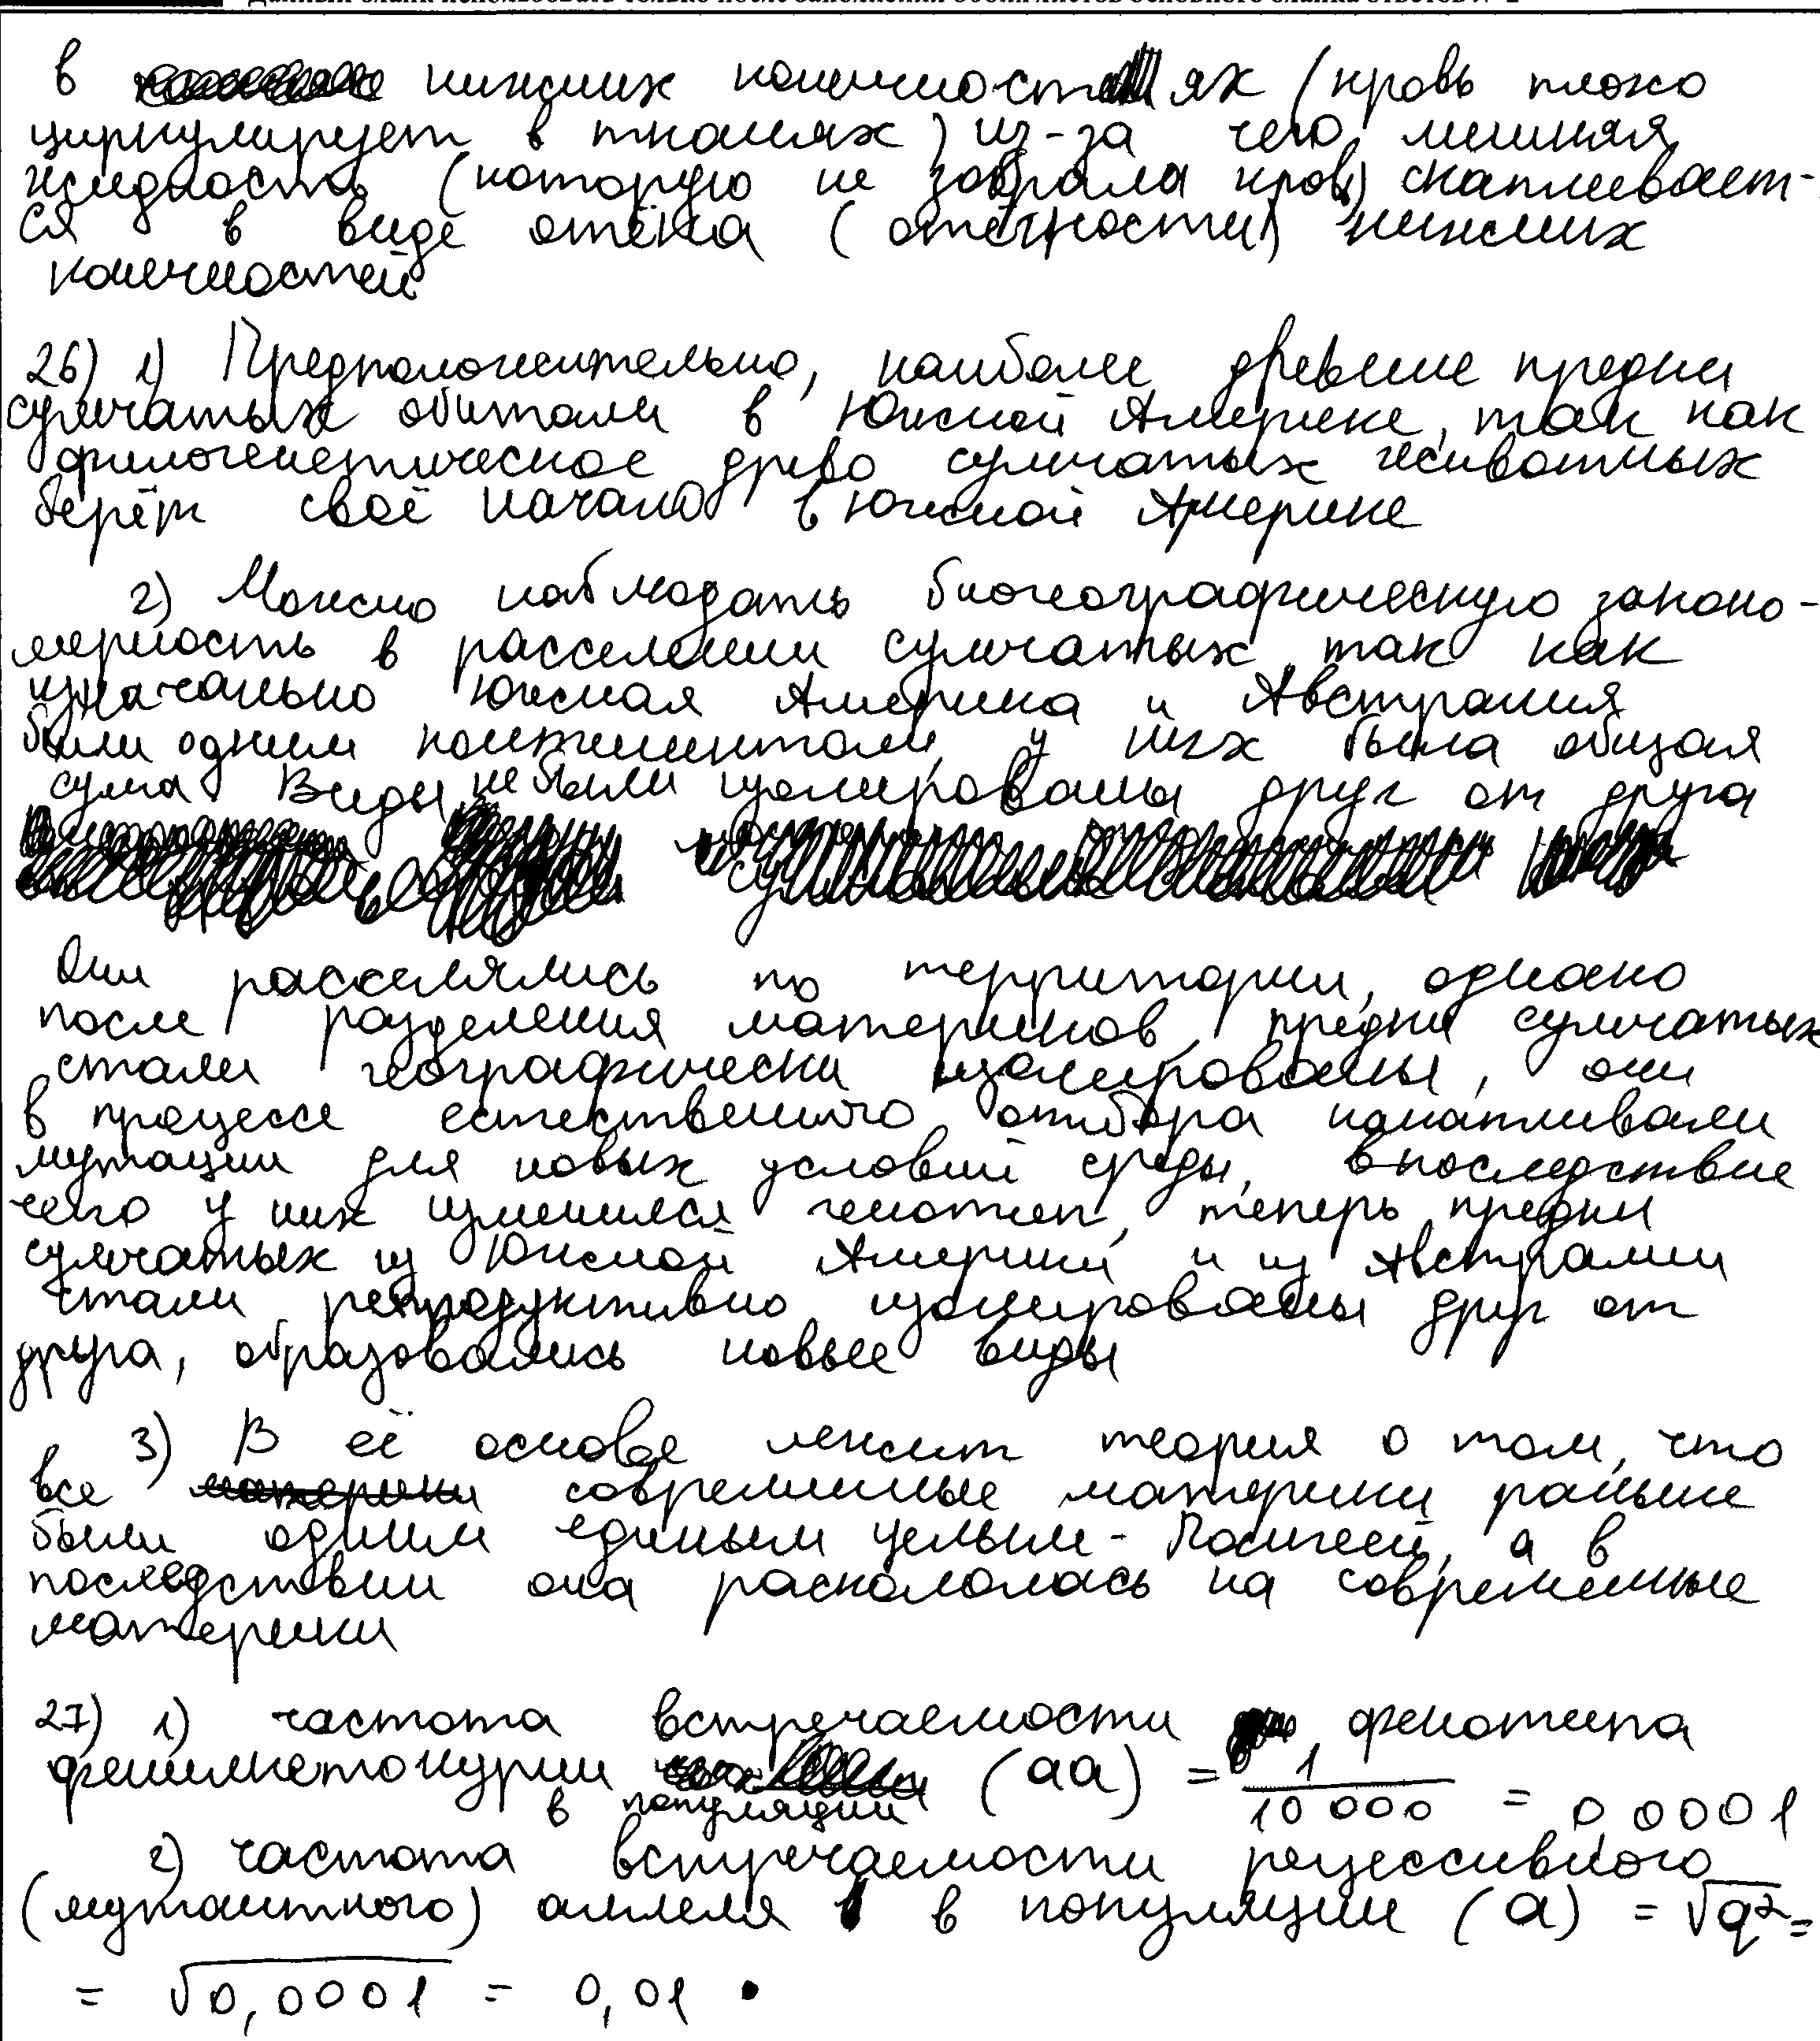 Данный бланк использовать только после заполнения обоих листов основного бланка ответов № 2
в нижних конечностях (кровь плохо
циркулирует в тканях) из-за чего лишняя
жидкость (которую не забрала кровь) скапливает-
ся в виде отёка (отёчности) нижних
конечностей
26) 1) Предположительно, наиболее древние предки
сумчатых обитали в Южной Америке, так как
филогенетическое древо сумчатых животных
берёт своё начало в Южной Америке
2) Можно наблюдать биогеографическую законо-
мерность в расселении сумчатых, так как
изначально Южная Америка и Австралия
были одним континентом, у них была общая
суша. Виды не были изолированы друг от друга
Они расселялись по территории, однако
после разделения материков, предки сумчатых
стали географически изолированы, они
в процессе естественного отбора накапливали
мутации для новых условий среды, впоследствие
чего у них изменился генотип, теперь предки
сумчатых из Южной Америки и из Австралии
стали репродуктивно изолированы друг от
друга, образовались новые виды
3) В её основе лежит теория о том, что
все материки современные материки раньше
были одним единым целым - Пангеей, а в
последствии она раскололась на современные
материки
27) 1) частота встречаемости фенотипа
фенилкетонурии в популяции (aa) = 1/10 000 = 0,0001
2) частота встречаемости рецессивного
(мутантного) аллеля в популяции (a) = √q² =
= √0,0001 = 0,01